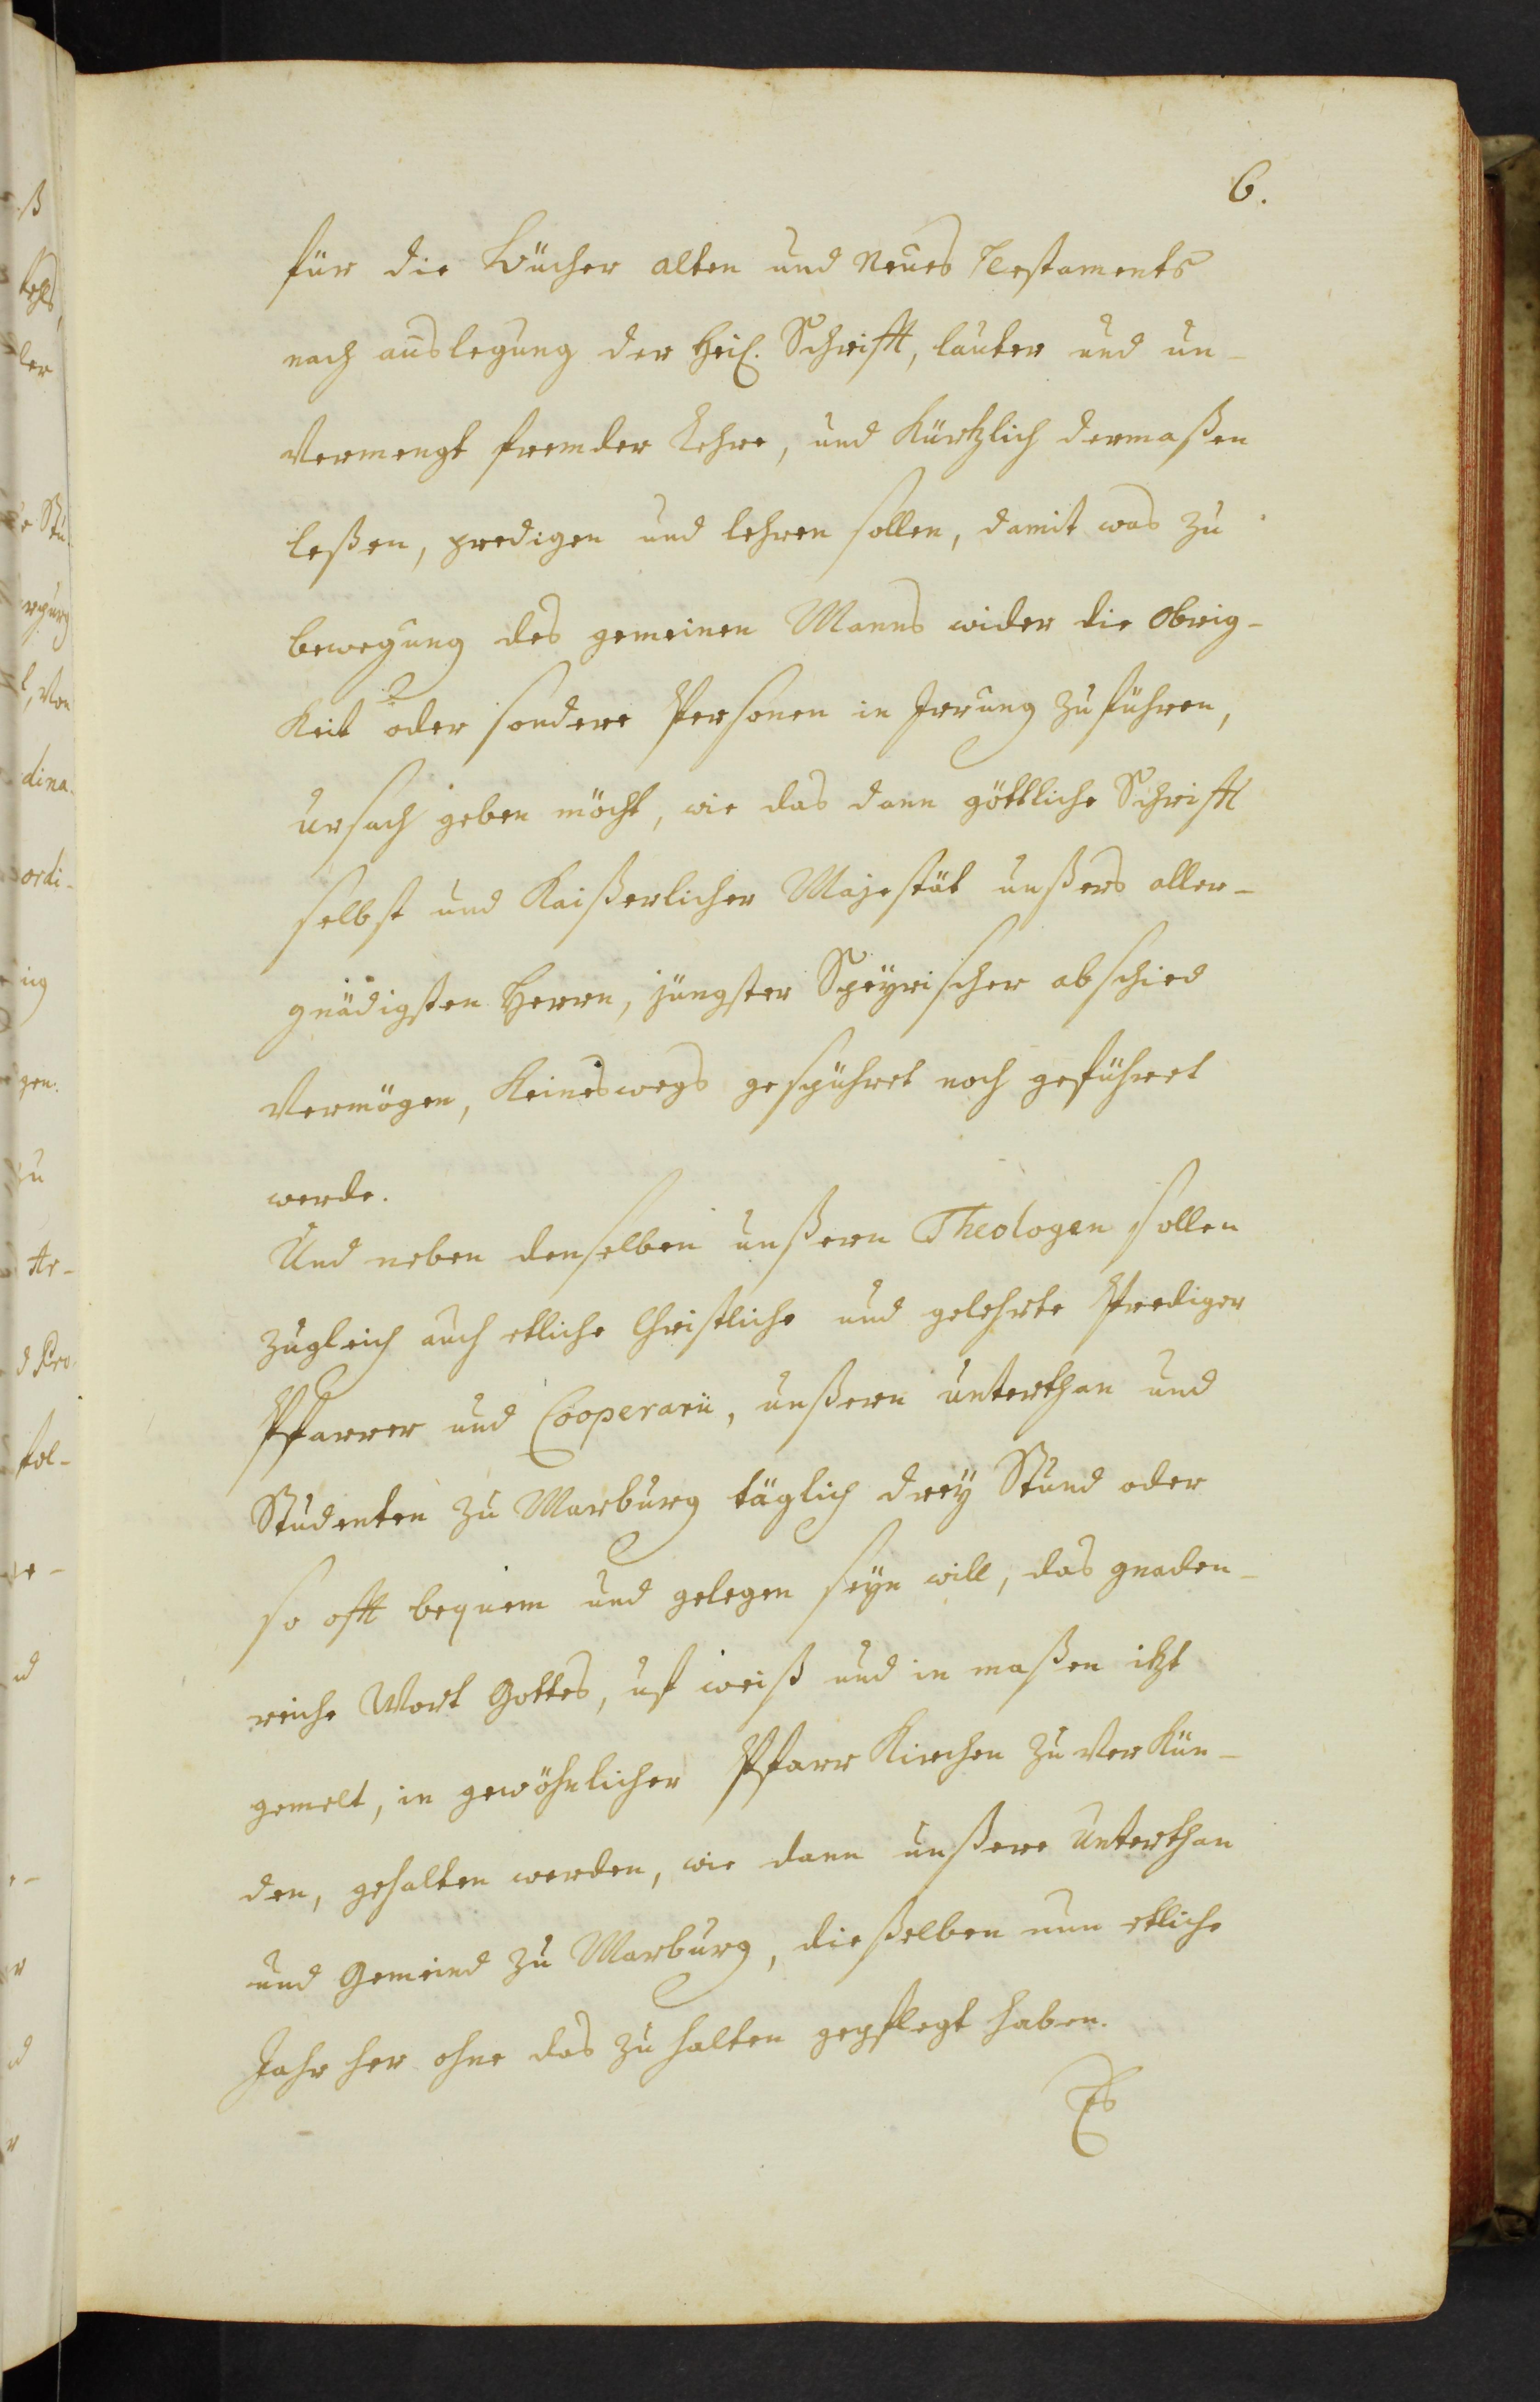 6.
für die Bücher alten und Neues Testaments
nach auslegung der Heil. Schrifft, lauter und un-
vermengt fremder Lehre, und kürtzlich dermaßen
leßen, predigen und lehren sollen, damit was zu
bewegung des gemeinen Manns wider die Obrig-
keit oder sondere Personen in Irrung zu führen,
ursach geben möcht, wie das dann göttliche Schrifft
selbst und Kaißerlicher Majestät unßers aller-
gnädigsten Herrn, jüngster Speyrischer abschied
vermögen, keineswegs gespühret noch geführet
werde.
Und neben denselben unßern Theologen sollen
zugleich auch etliche Christliche und gelehrte Prediger
Pfarrer und Cooperarii, unßern unterthan und
Studenten zu Marburg täglich drey Stund oder
so offt bequem und gelegen seyn will, das gnaden-
reiche Wort Gottes, uf weiß und in maßen itzt
gemelt, in gewöhnlicher Pfarr Kirchen zu verkün-
den, gehalten werden, wie dann unßere Unterthan
und Gemeind zu Marburg, dießelben nun etliche
Jahr her ohne das zu halten gepflegt haben.
Es